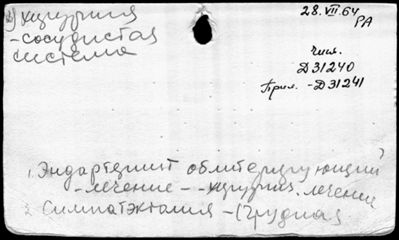 3) хирургия
- сосудистая
система
28.VII.64
РА
Числ.
Д31240
Прил. - Д31241
1. Эндартериит облитерирующий
- лечение -- хирургич. лечение
2. Симпатэктомия - (грудная